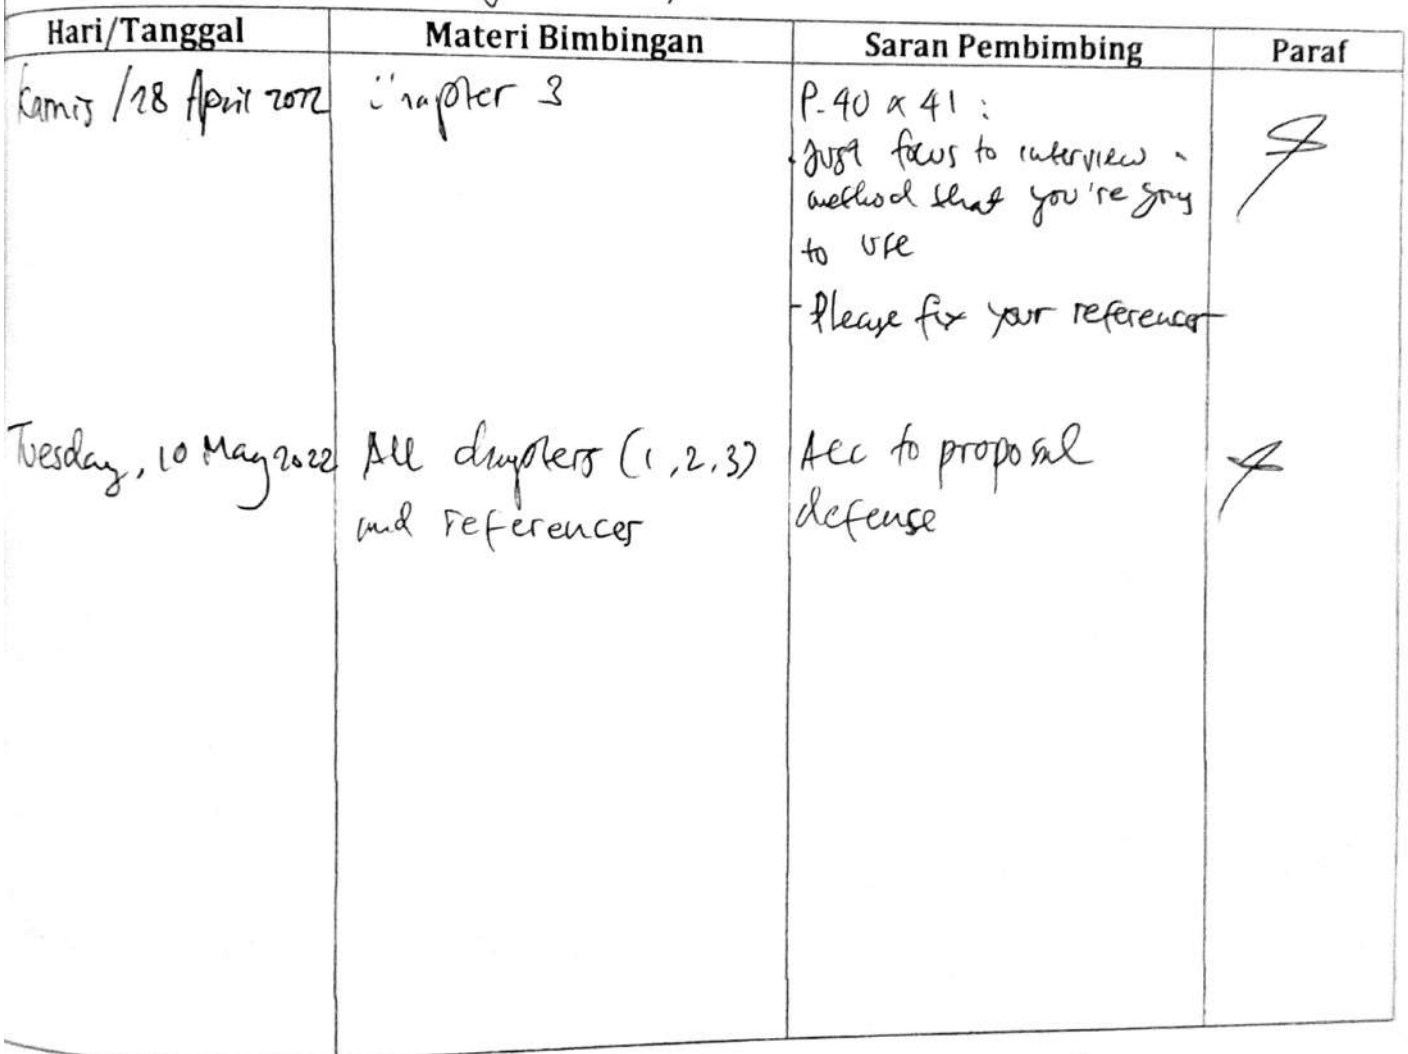 Hari/Tanggal Materi Bimbingan Saran Pembimbing Paraf
Kamis / 28 April 2022 Chapter 3 P. 40 & 41 :
- Just focus to interview
method that you're going
to use
- Please fix your references
Tuesday, 10 May 2022 All chapters (1, 2, 3) Acc to proposal
and references defense